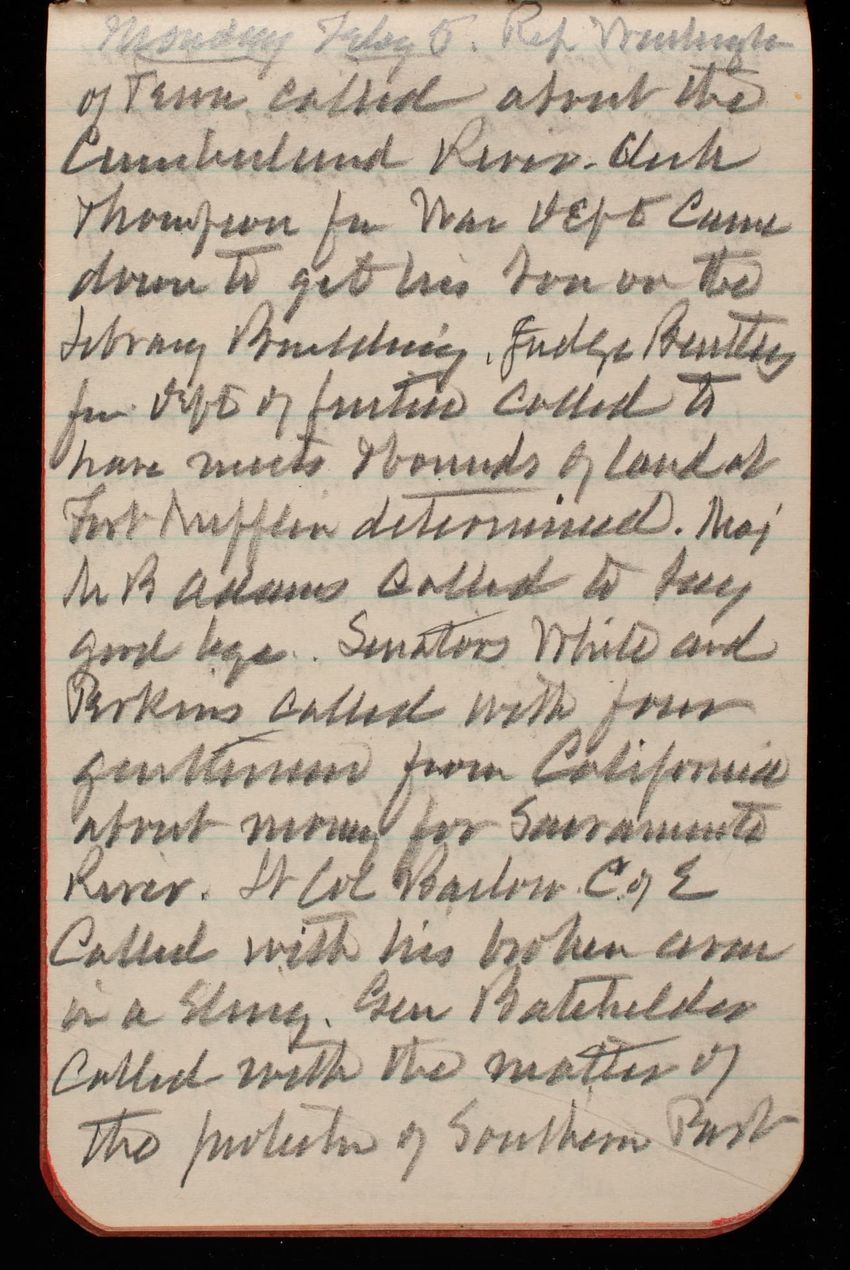 Monday Feby 5. Rep Washington
of Tenn called about the
Cumberland River. Clerk
Thompson fm War Dept Came
down to get his son on the
Library Building. Judge Bentley
fm Dept of Justice called to
have meets & bounds of land at
Fort Mifflin determined. Maj
M B Adams called to say
good bye. Senators White and
Perkins called with four
gentlemen from California
about money for Sacramento
River. Lt Col Barlow C of E
Called with his broken arm
in a Sling. Gen Batchelder
Called with the matter of
the protectn of Southern Part